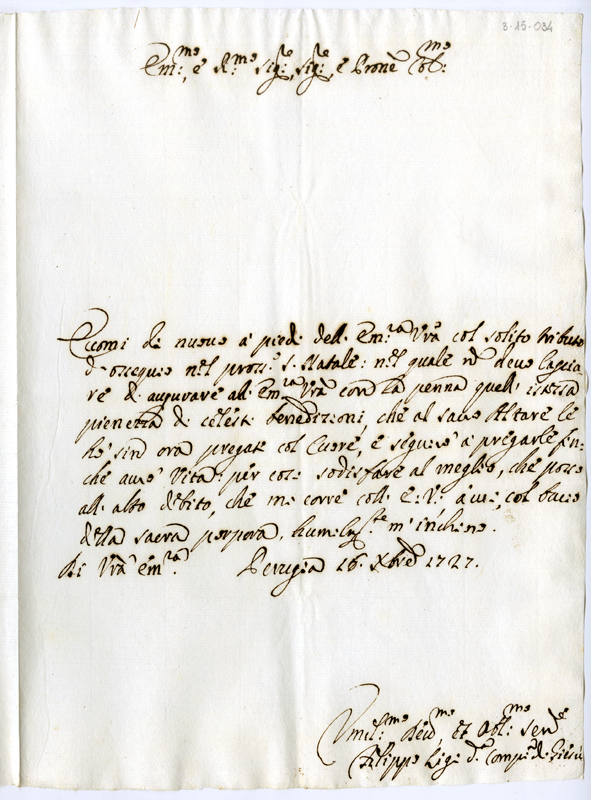 3-15-034
Em:mo, e R:mo Sig:re, Sig:re, e Prone Col:mo
Eccomi di nuovo a' piedi dell' Em:ra Vrã col solito tributo
d'ossequio nel pross:o S. Natale: nel quale nõ devo lascia
re di augurare all' Em:ra Vrã con la penna quell' istessa
pienezza di celesti benedizioni, che al sacro Altare le
hò sin ora pregate col Cuore, e seguirò a pregarle fin
che avrò Vita: per così sodisfare al meglio, che posso
all' alto debito, che mi corre coll' E: V: a cui, col bacio
della sacra porpora, humiliss:te m'inchino.
Di Vrã Em:ra Perugia 16. Xbre 1727.
Umil:mo Dev:mo et Obl:mo Serv:e
Filippo d:a Comp:a di Giesù